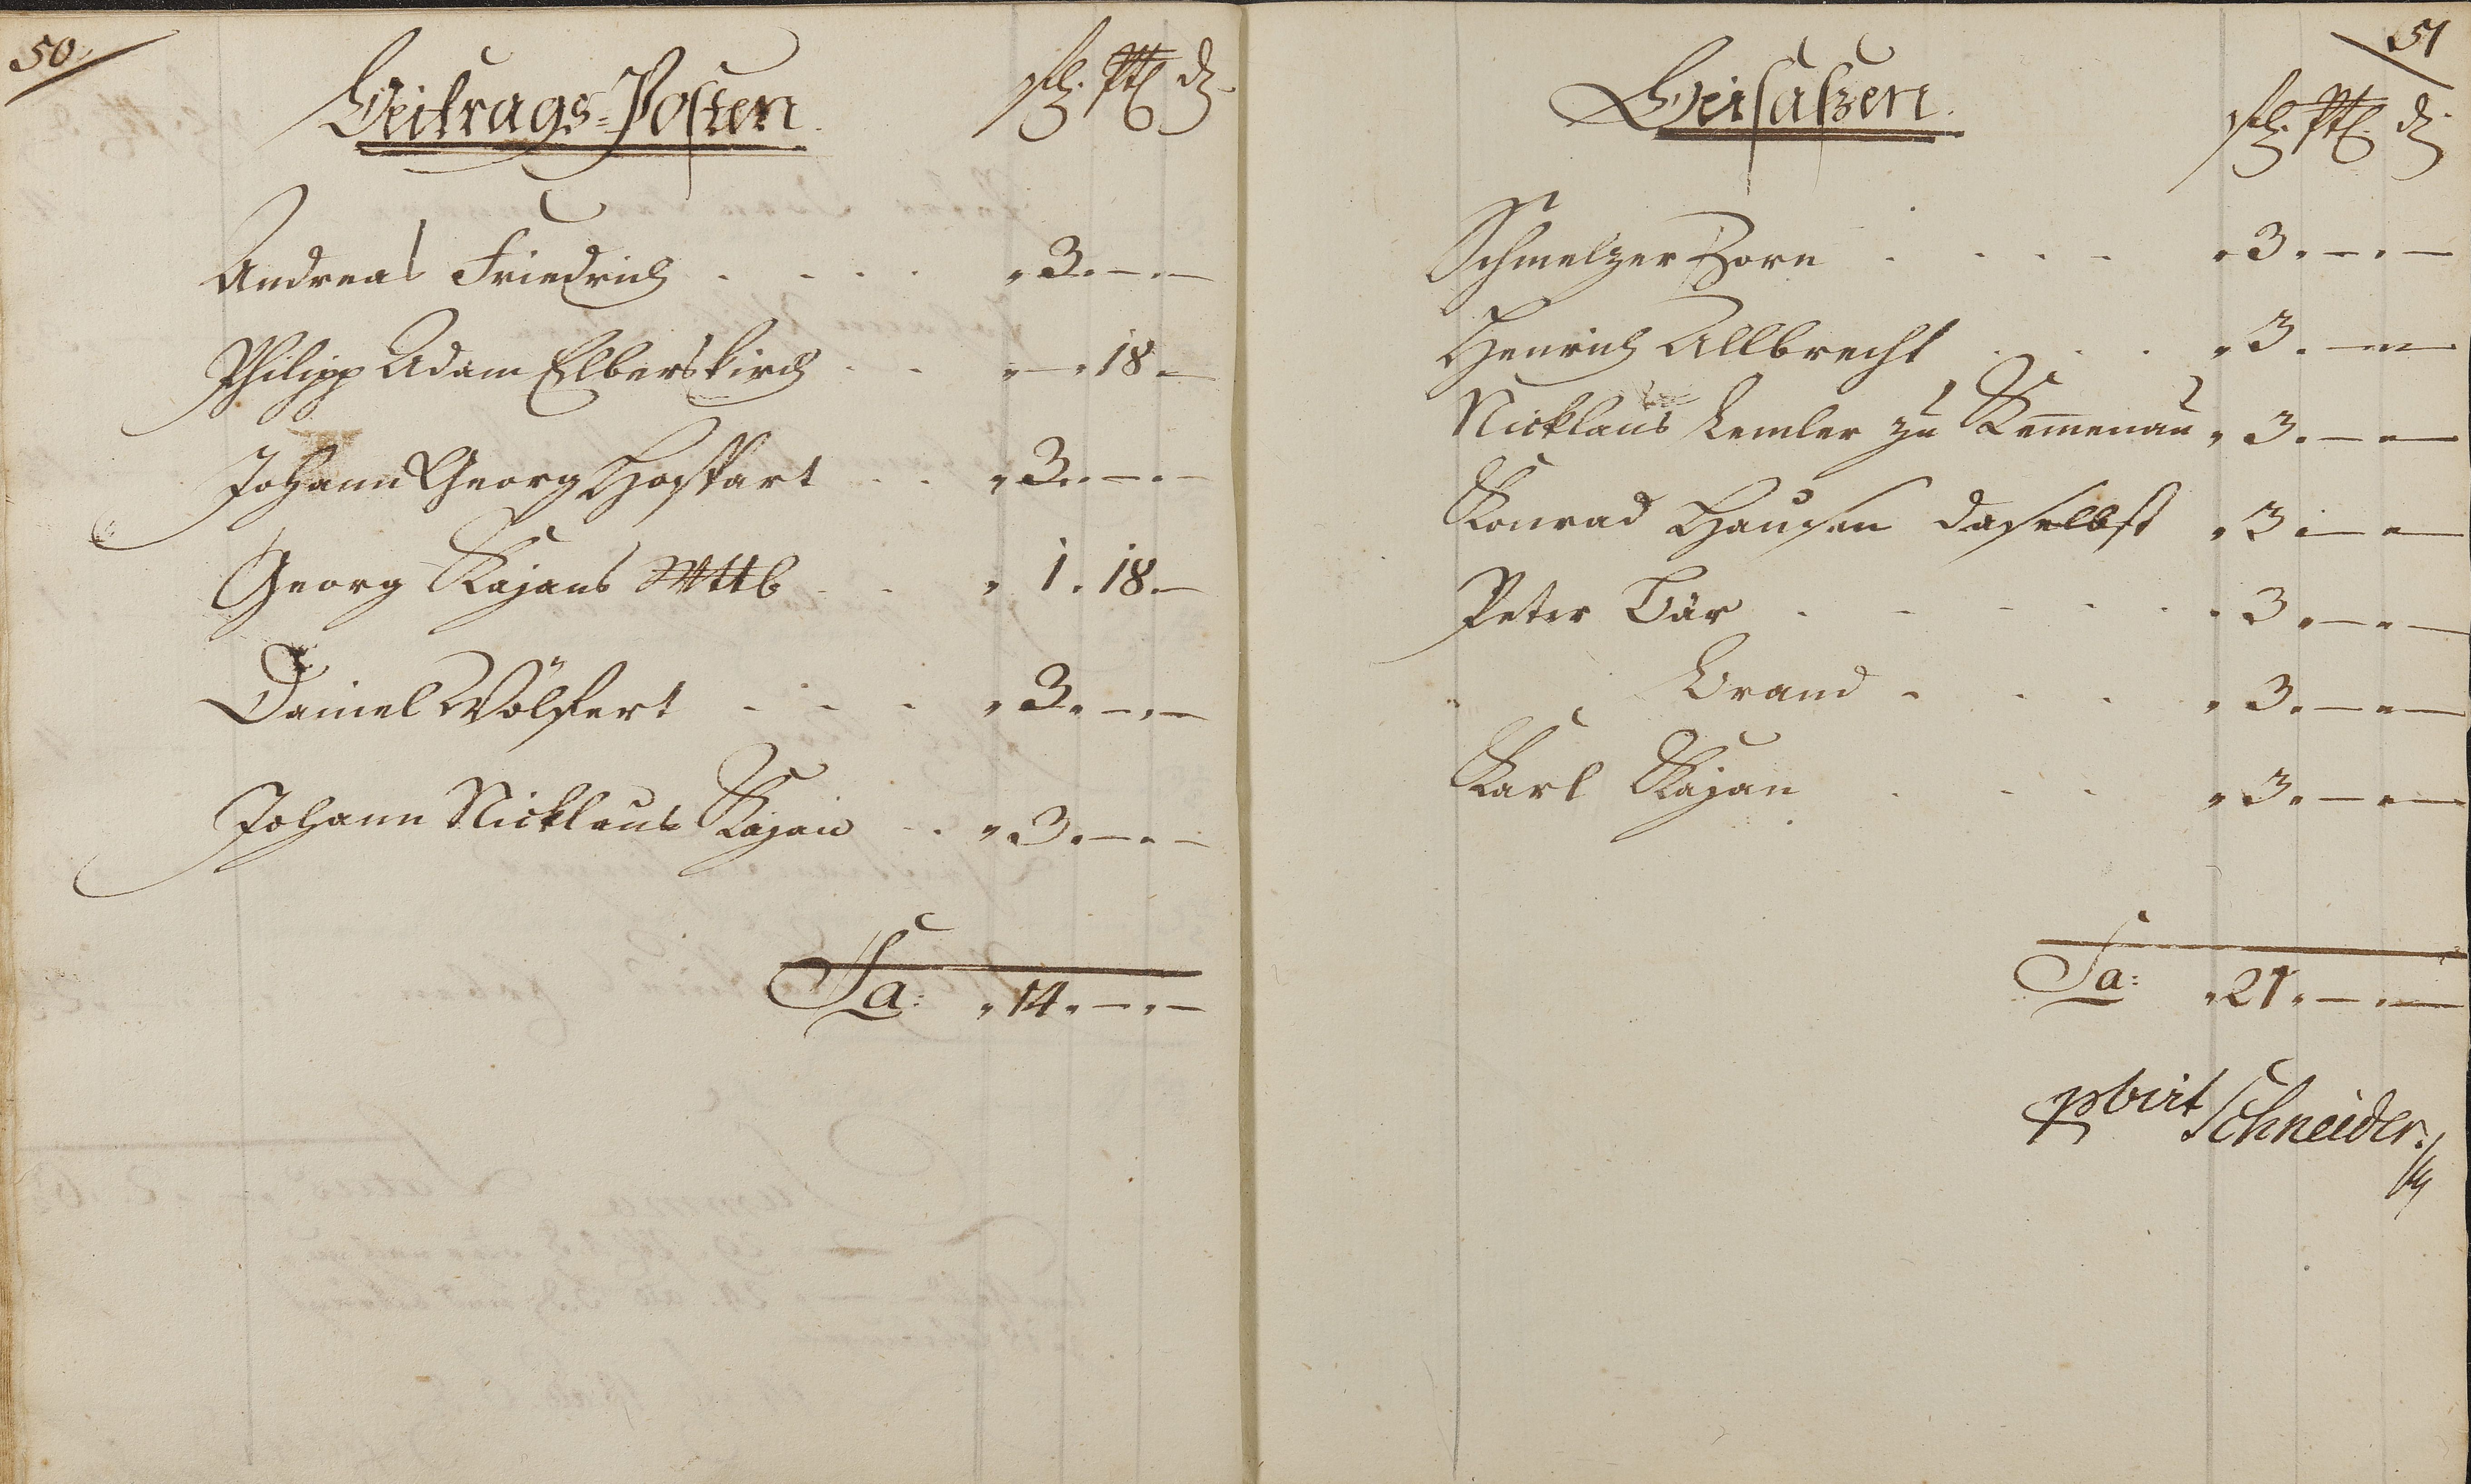 50.
Beitrags-Posten. fl. Btz. d.
Andreas Friedrich . . . . „ 3. — . —
Philipp Adam Elberskirch . . „ — . 18. —
Johann Georg Hoffart . . „ 3. — . —
Georg Kajans Wttb . . „ 1. 18. —
Daniel Wölfert . . . „ 3. — . —
Johann Nicklaus Kajan . . „ 3. — . —
Sa: „ 14. — . —
51
Beisaßen. fl. Btz. d.
Schmelzer Zorn . . . . „ 3. — . —
Henrich Allbrecht . . . „ 3. — —
Nicklaus Lemler zu Kem̅enau „ 3. — —
Konrad Hausen daselbst „ 3 — —
Peter Bär . . . . . . 3. — —
„ Brand . . . „ 3. — —
Karl Kajan . . . „ 3. — —
Sa: „ 21. — . —
Schneider.